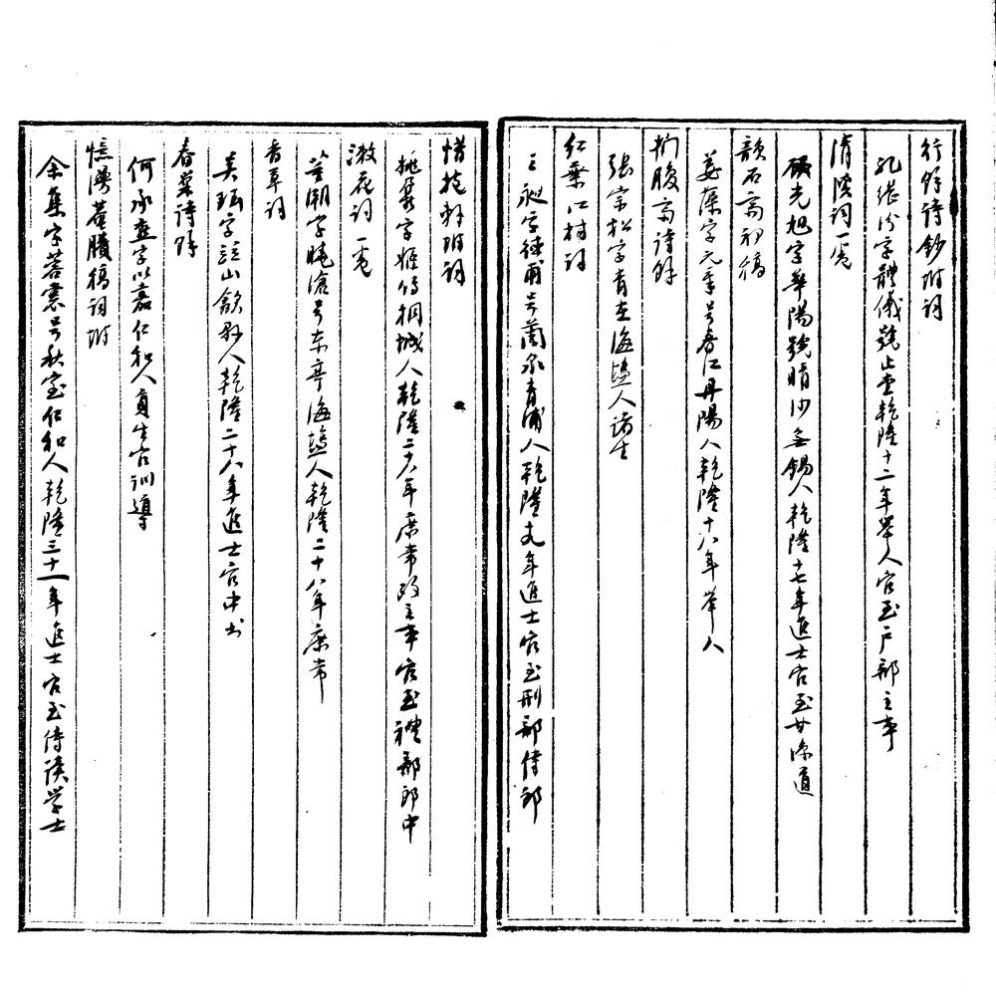 行餘詩鈔附詞
孔繼汾字體儀號止堂乾隆十二年舉人官至户部主事
清濤詞一卷
顧光旭字華陽號晴沙無錫人乾隆十七年進士官至甘凉道
韻石齋初稿
姜藻字元季号春江丹陽人乾隆十八年举人
捫腹齋詩餘
張宗松字青在海鹽人諸生
紅葉江村詞
王昶字德甫号蘭泉青浦人乾隆十九年進士官至刑部侍郎
惜抱軒附詞
姚鼐字姬傳桐城人乾隆二十八年庶常改主事官至禮部郎中
漱花詞一卷
董潮字曉滄号东亭海鹽人乾隆二十八年庶常
香草詞
吴珏字並山歙县人乾隆二十八年進士官中书
春巢詩餘
何承燕字以嘉仁和人貢生官訓導
憶漫菴賸稿詞附
余集字蓉裳号秋室仁和人乾隆三十一年進士官至侍讀学士